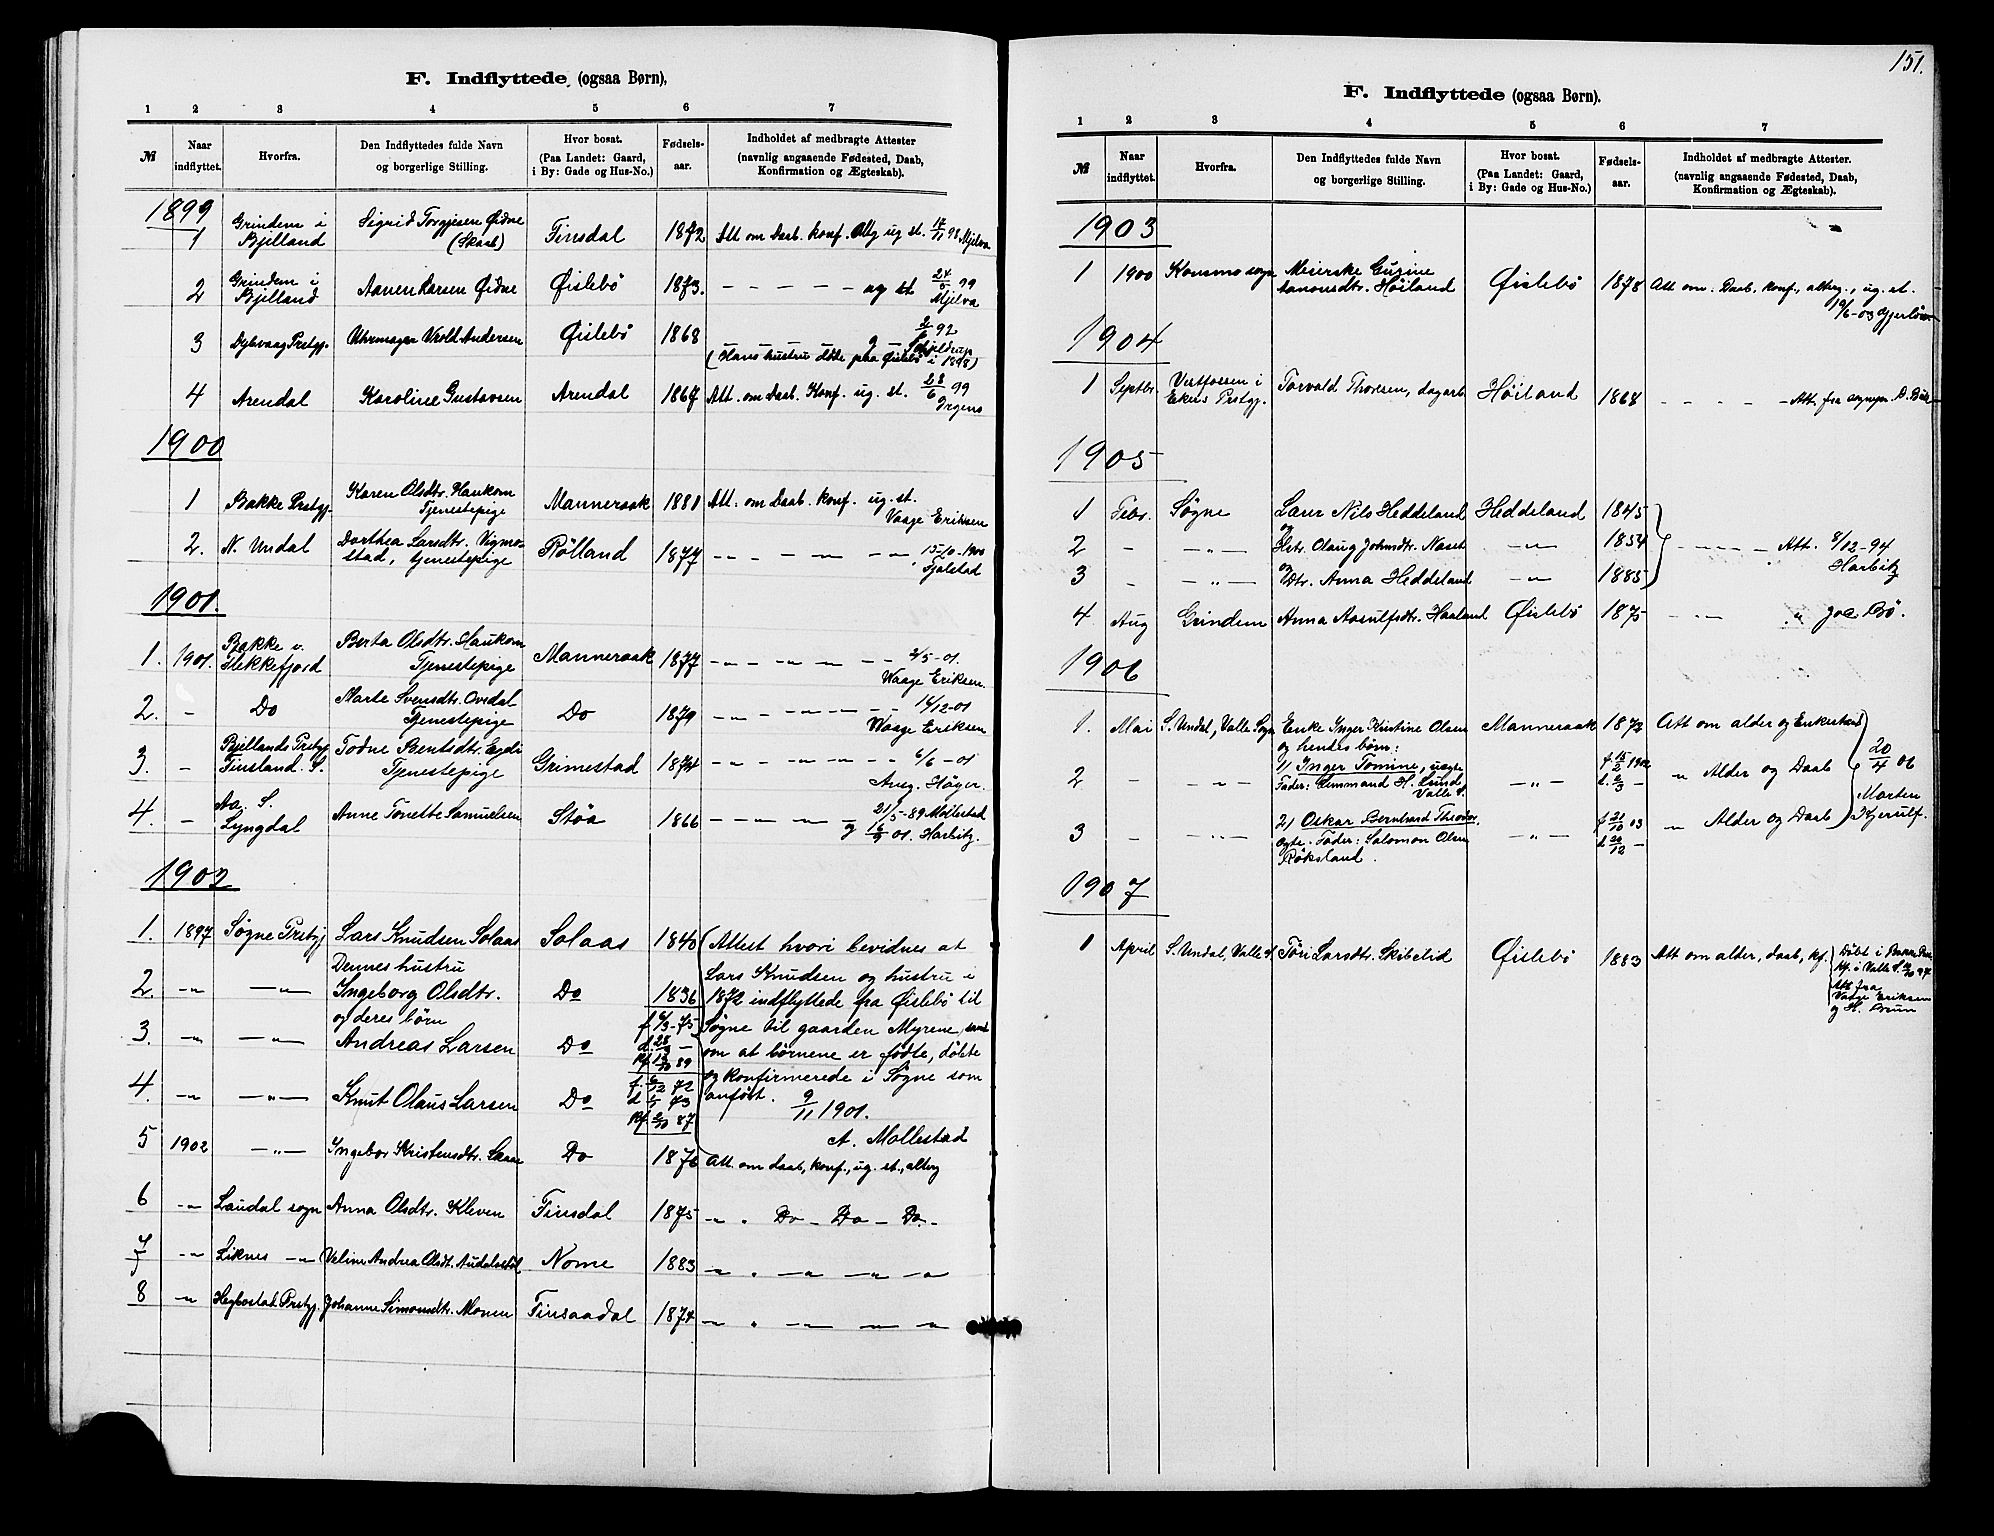 F. Indflyttede (ogsaa Børn).
1 2 3 4 5 6 7
№ Naar indflyttet. Hvorfra. Den Indflyttedes fulde Navn og borgerlige Stilling. Hvor bosat. (Paa Landet: Gaard, i By: Gade og Hus-No.) Fødsels-aar. Indholdet af medbragte Attester (navnlig angaaende Fødested, Daab, Konfirmation og Ægteskab).
1899
1 Grindem i Bjelland Sigrid Torgjesen Øidne (Skaar) Finsdal 1872 Att om Daab. konf. Altg ug st. 98 Mjelva
2 Grindem i Bjelland Aanen Larsen Øidne Øislebö 1873. – – – – – ug st 24/5 99 Mjelva
3 Dybvaag Prstgj. Uhrmager Vrold Andersen Øislebö 1868 – – – g – 2/6 92 Schjeldrup
(Hans hustru döde paa Øislebö i 1898)
4 Arendal Karoline Gustavsen Arendal 1867 Att. om Daab. Konf. ug. st. 28/6 99 Irgens
1900
1 Bakke Prstgj. Karen Olsdtr. Haukom Tjenestepige Manneraak 1881 Att. om Daab. konf. ug. st. Vaage Eriksen
2. N. Undal Dorthea Larsdtr. Vigmostad, tjenestepige Rölland 1877 – – – – – 15/10-1900 Fjalstad
1901.
1. 1901. Bakke v. Flekkefjord Berta Olsdtr. Haukom Tjenestepige Manneraak 1877 – – – – – 2/5-01. Waage Eriksen.
2. – Do Marte Svensdtr. Ovedal Tjenestepige Do 1879 – – – – – 14/12-01 Vaage Eriksen
3. – Bjellands Prstgj. Finsland. S. Todne Berntsdtr. Tjenestepige Grimestad 1874 – – – – – 6/6-01 Aug. Höyer.
4. – Aa. S. Lyngdal Anne Tonette Samuelsen Stöa 1866 – – – – 21/5-89 Mølbstad
g 01. Harbitz.
1902
1. 1897 Søgne Prstgj Lars Knudsen Solaas Solaas 1840 Attest hvori bevidnes at
Dennes hustru
2. –"– –"– Ingeborg Olsdtr. Do 1836 Lars Knudsen og hustru i
1872 indflyttede fra Øislebö til
og deres børn
3. –"– –"– Andreas Larsen Do f 6/3-75 d. 28/3 – Kf 13/10 89 Søgne til gaarden Myrene, samt
om at børnene er fødte, döbte
4. –"– –"– Knut Olaus Larsen Do f. 6/12 72 d 1/1 73 Kf 2/10 87 og konfirmerede i Søgne som
anført. 9/11 1901.
A. Mollestad
5 1902 –"– Ingebor Kristensdtr. Do 1876 Att. om daab, konf., ug. st., alterg
6 –"– Laudal sogn Anna Olsdtr. Kleven Finsdal 1875 –" " Do – Do – Do.–
7 –"– Liknes –"– Veline Andrea Olsdt. Nome 1883 –" " –"– –"– –"–
8 –"– Hegbostad Prstgj. Johanne Simonsdtr. Monen Finsaadal 1874 –" " –"– –"– –"–
151.
F. Indflyttede (ogsaa Børn).
1 2 3 4 5 6 7
№ Naar indflyttet. Hvorfra. Den Indflyttedes fulde Navn og borgerlige Stilling. Hvor bosat. (Paa Landet: Gaard, i By: Gade og Hus-No.) Fødsels-aar. Indholdet af medbragte Attester. (navnlig angaaende Fødested, Daab, Konfirmation og Ægteskab).
1903
1 1900 Konsmo sogn Meierske Gusine Aanonsdtr. Höiland Øislebö 1878 Att om. Daab. konf., alterg., ug. st.
19/6-03
1904
1 Septbr. Vestfossen i Ekers Prstgj. Torvald Thorsen, dagarb. Höiland 1868 – – – – – Att. fra
1905
1 Febr. Søgne Lærer Nils Heddeland Heddeland 1845
2 – –"– og Hstr. Olaug Johnsdtr. Naset –"– 1854 – – – – Att. 8/12-94 Harbitz
3 – –"– og Dtr. Anna Heddeland –"– 1885
4 Aug Grindem Anna Aasulfsdtr. Haaland Øislebö 1875 – – – " Joe Bö.
1906
1. Mai S. Undal, Valle Sogn Enke Inger Kristine Olsen Manneraak 1872 Att om alder og Enkestand
og hendes børn:
2 – " 1) Inger Tomine, uægte Fader: Emmand H. Lund Valle S. –"– f 15/2 1902 d. 2/3 – –"– Alder og Daab 20/4 06
3 – –"– 2) Oskar Bernhard Theodor. ægte. Fader: Salomon Olsen Röksland. –"– f 21/10 03 d 26/12 – –"– Alder og Daab Morten Kjerulf.
1907
1 April S. Undal, Valle S. Töri Larsdtr. Skibelid Øislebö 1883 Att om alder, daab, kf. Döbt i
kf. i Valle S. 97
Att fra
Vaage Eriksen
og H. Bruun